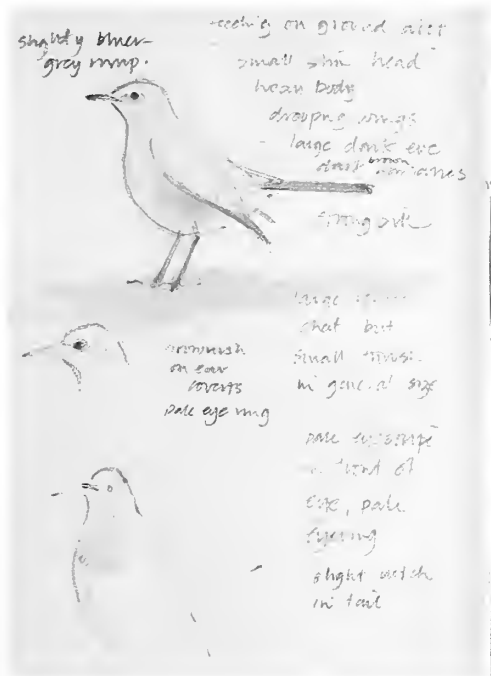 slightly bluer-
grey rump.
feeding on ground
small slim head
heavy body
drooping wings
large dark eye
dark brown
strong
large
chat but
small thrush
in general size
brownish
on ear
coverts
pale eye ring
pale eyestripe
in front of
eye, pale
eyering
slight notch
in tail